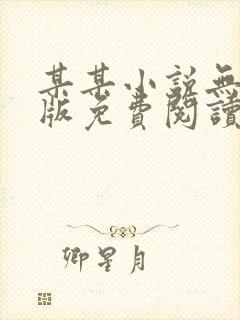 某某小說無
版免費閱讀
卿星月